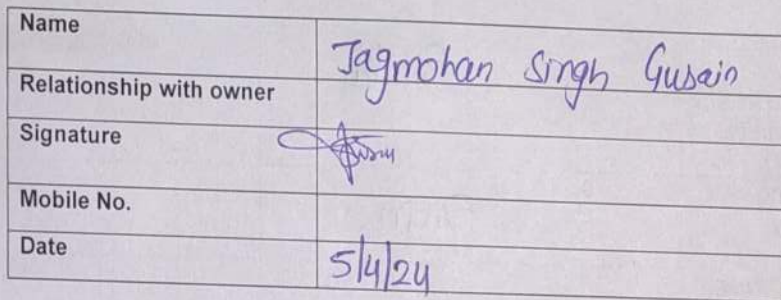 Name
Jagmohan Singh Gusain
Relationship with owner
Signature
Mobile No.
Date
5/4/24